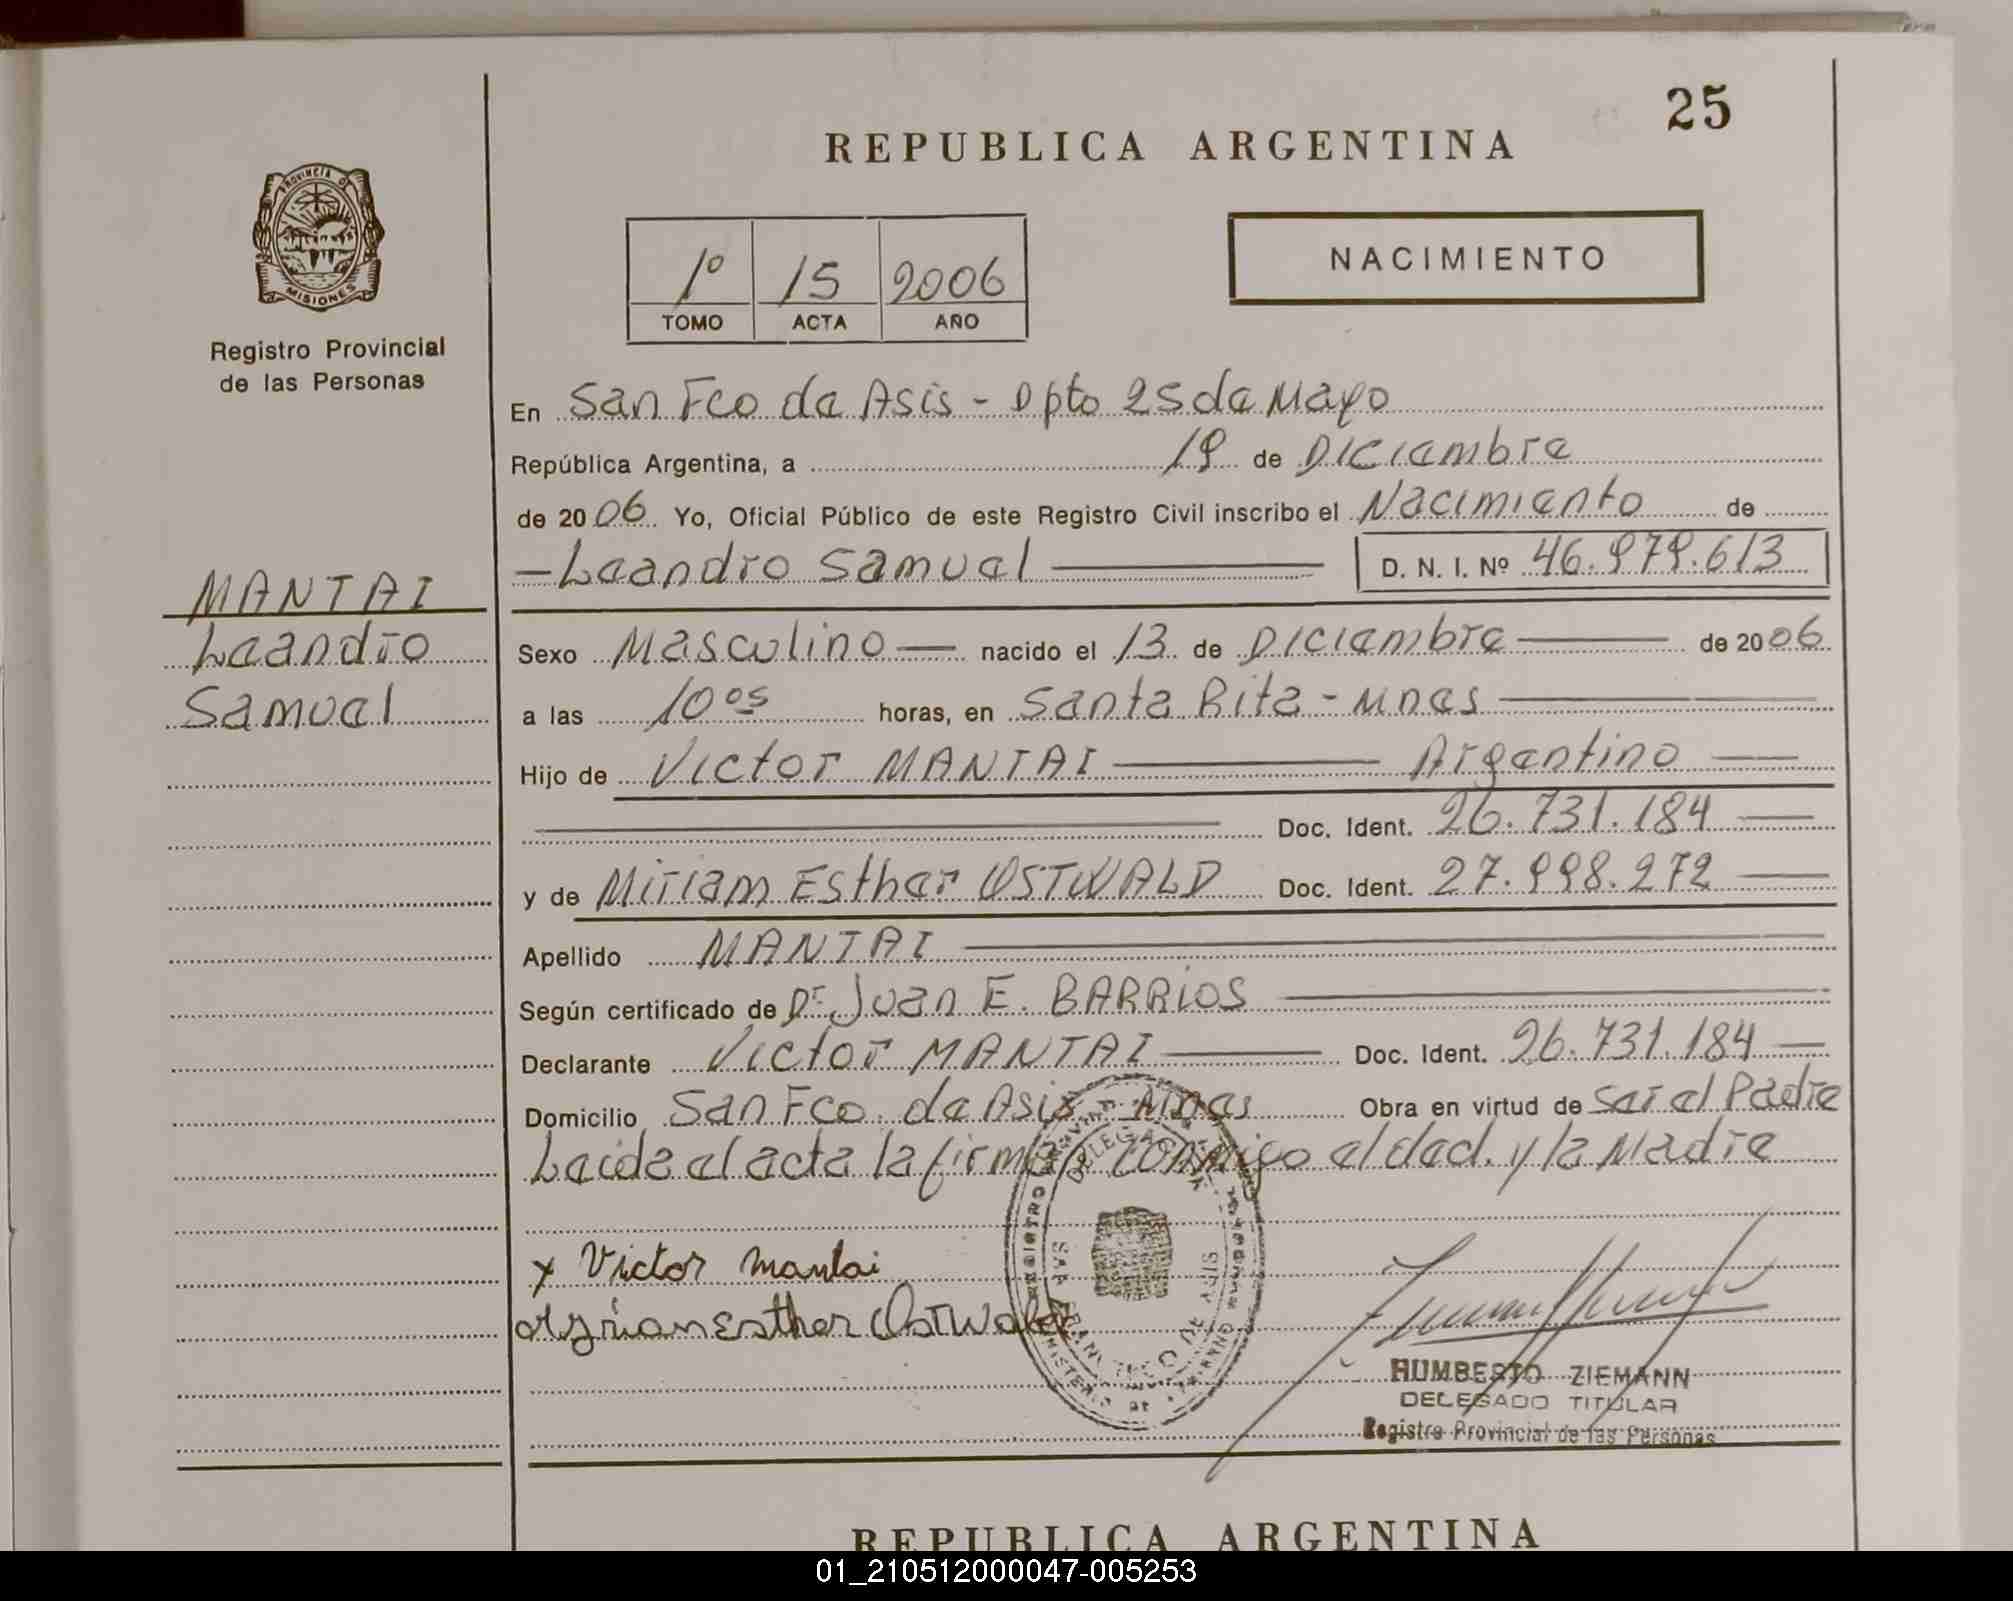 25
REPUBLICA ARGENTINA
PROVINCIA DE
MISIONES
Registro Provincial
de las Personas
1º 15 2006
TOMO ACTA AÑO
NACIMIENTO
En San Fco de Asis - Dpto 25 de Mayo
República Argentina, a 19 de Diciembre
de 2006 Yo, Oficial Público de este Registro Civil inscribo el Nacimiento de
- Leandro Samuel D. N. I. Nº 46.979.613
MANTAI
Leandro
Samuel
Sexo Masculino nacido el 13 de Diciembre de 2006
a las 10 05 horas, en Santa Rita - Mnes
Hijo de Victor MANTAI Argentino
Doc. Ident. 26.731.184
y de Miriam Esther OSTWALD Doc. Ident. 27.998.272
Apellido MANTAI
Según certificado de Dr Juan E. BARRIOS
Declarante Victor MANTAI Doc. Ident. 26.731.184
Domicilio San Fco. de Asis Mnes Obra en virtud de ser el Padre
Leida el acta la firman conmigo el decl. y la Madre
x Victor Mantai
Esther Ostwald
HUMBERTO ZIEMANN
DELEGADO TITULAR
Registro Provincial de las Personas
REPUBLICA ARGENTINA
01_210512000047-005253